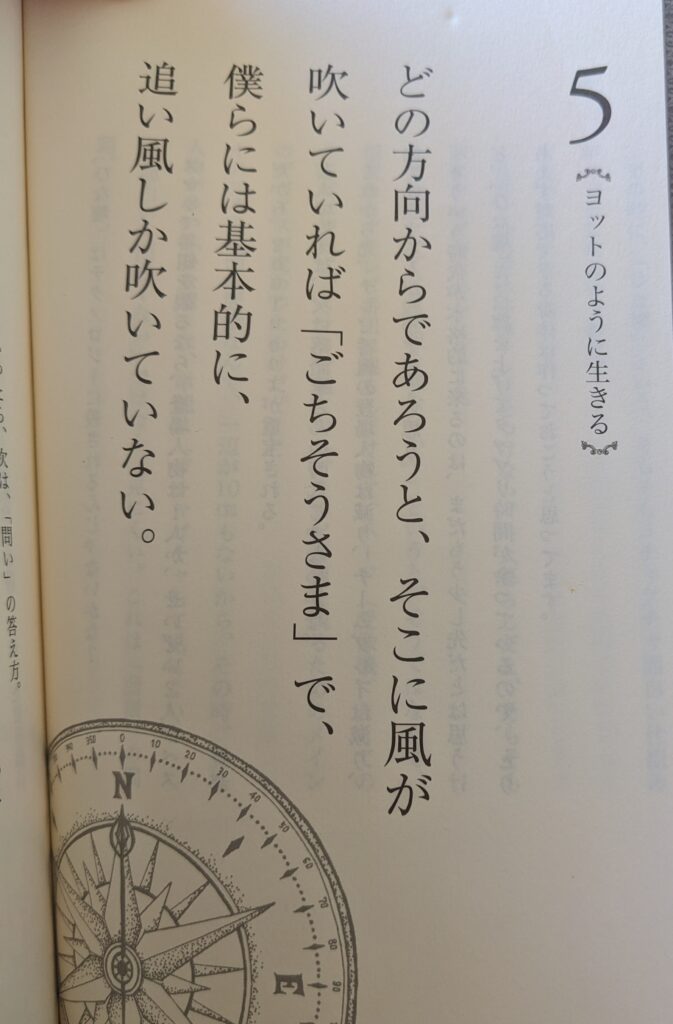 5
ヨットのように生きる
どの方向からであろうと、そこに風が
吹いていれば「ごちそうさま」で、
僕らには基本的に、
追い風しか吹いていない。
次は、「問い」の答え方。
350 0 10 20 30 40 50 60 70 80 90
N
E